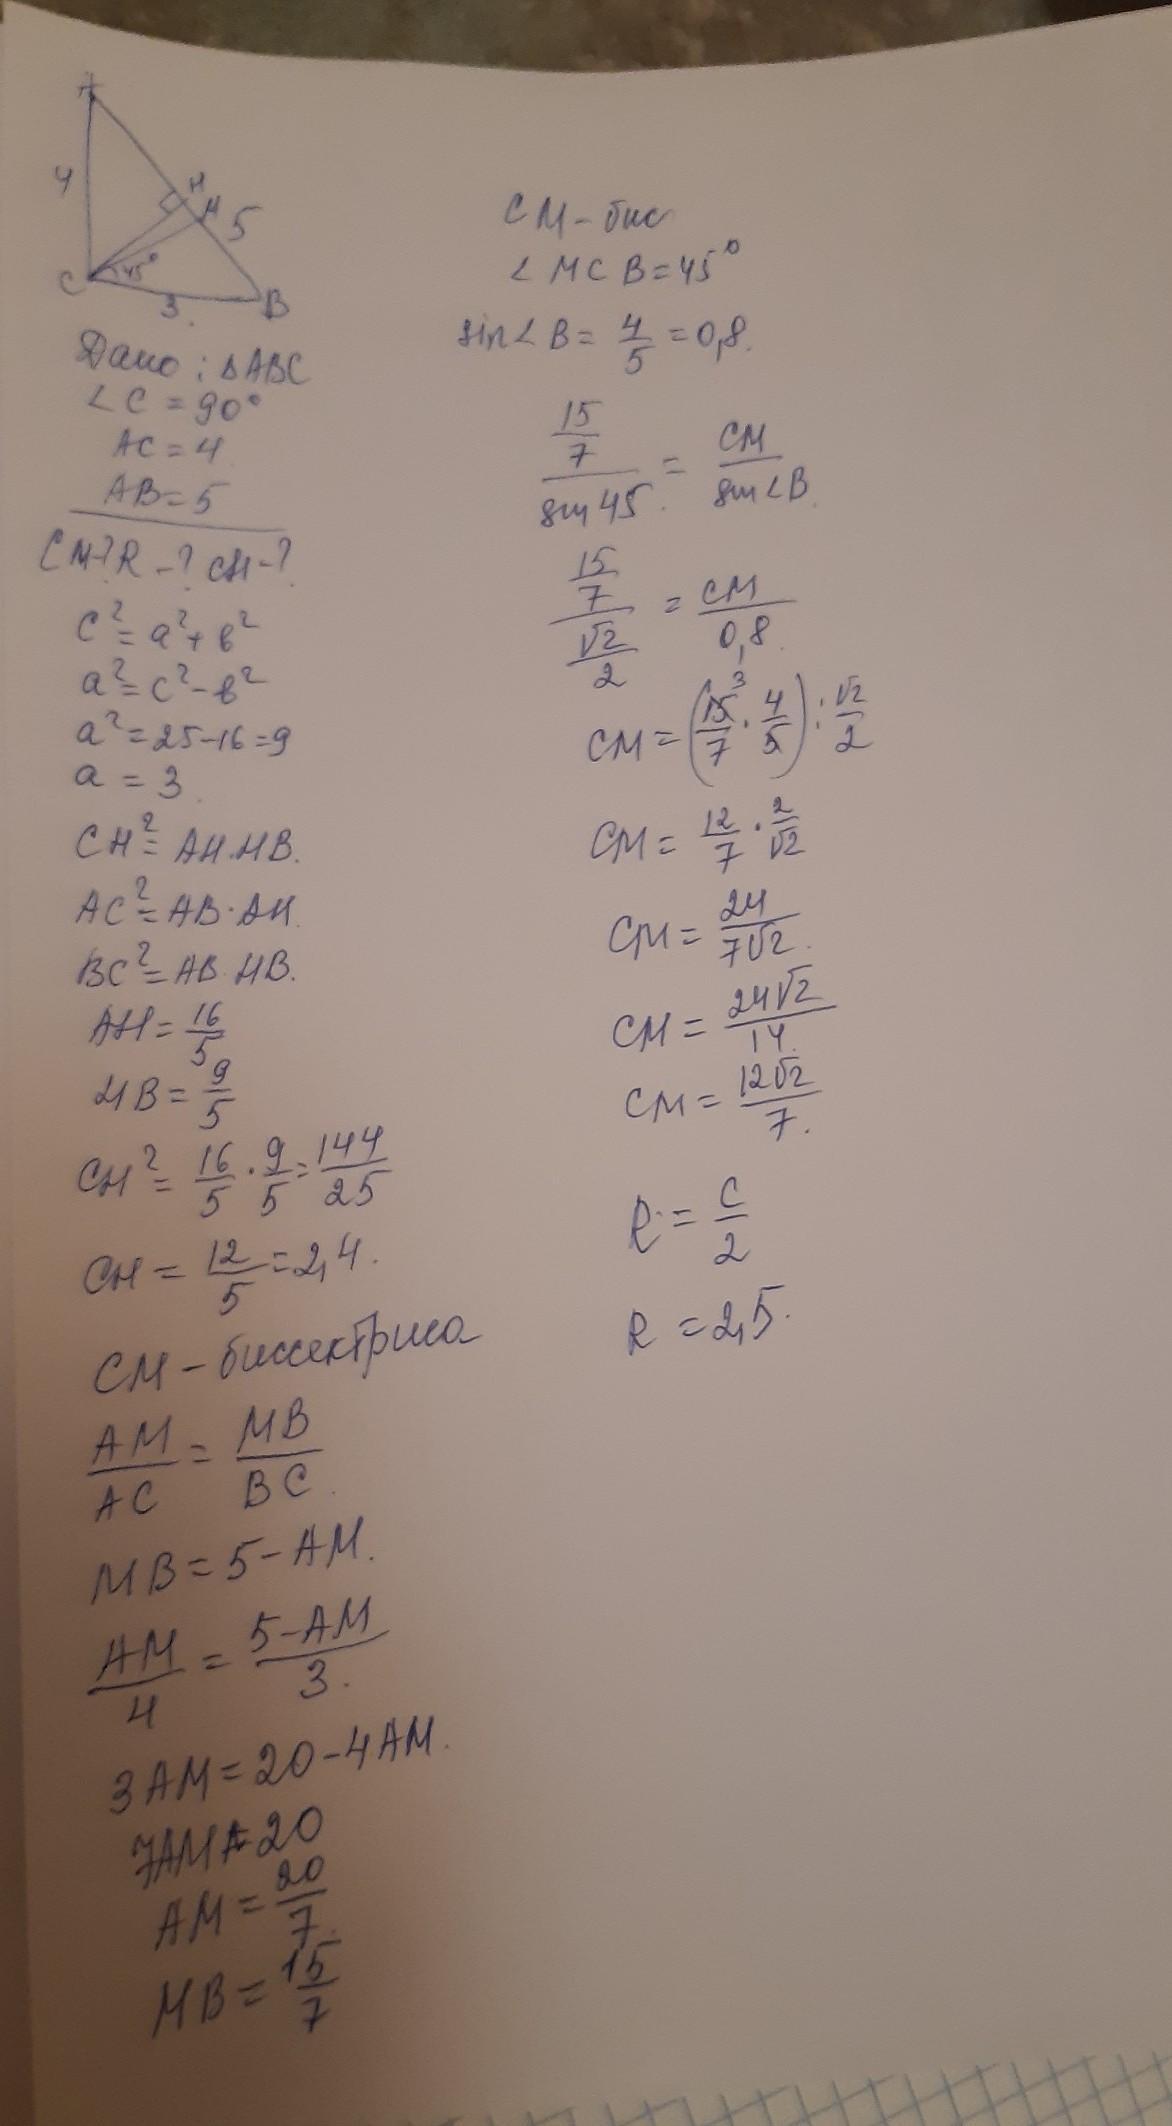 A
4
H
M
5
45°
C
3
B
Дано: ΔABC
∠C = 90°
AC = 4
AB = 5
CM-? R-? CH-?
c² = a² + b²
a² = c² - b²
a² = 25 - 16 = 9
a = 3.
CH² = AH·HB.
AC² = AB·AH.
BC² = AB·HB.
AH = 16/5
HB = 9/5
CH² = 16/5 · 9/5 = 144/25
CH = 12/5 = 2,4.
CM - биссектриса
AM/AC = MB/BC.
MB = 5 - AM.
AM/4 = 5-AM/3.
3AM = 20 - 4AM.
7AM = 20
AM = 20/7.
MB = 15/7
CM - бис
∠MCB = 45°
sin∠B = 4/5 = 0,8.
15/7/sin 45. = CM/sin∠B.
15/7/√2/2 = CM/0,8.
CM = (15³/7 · 4/5) : √2/2
CM = 12/7 · 2/√2
CM = 24/7√2.
CM = 24√2/14.
CM = 12√2/7.
R = c/2
R = 2,5.